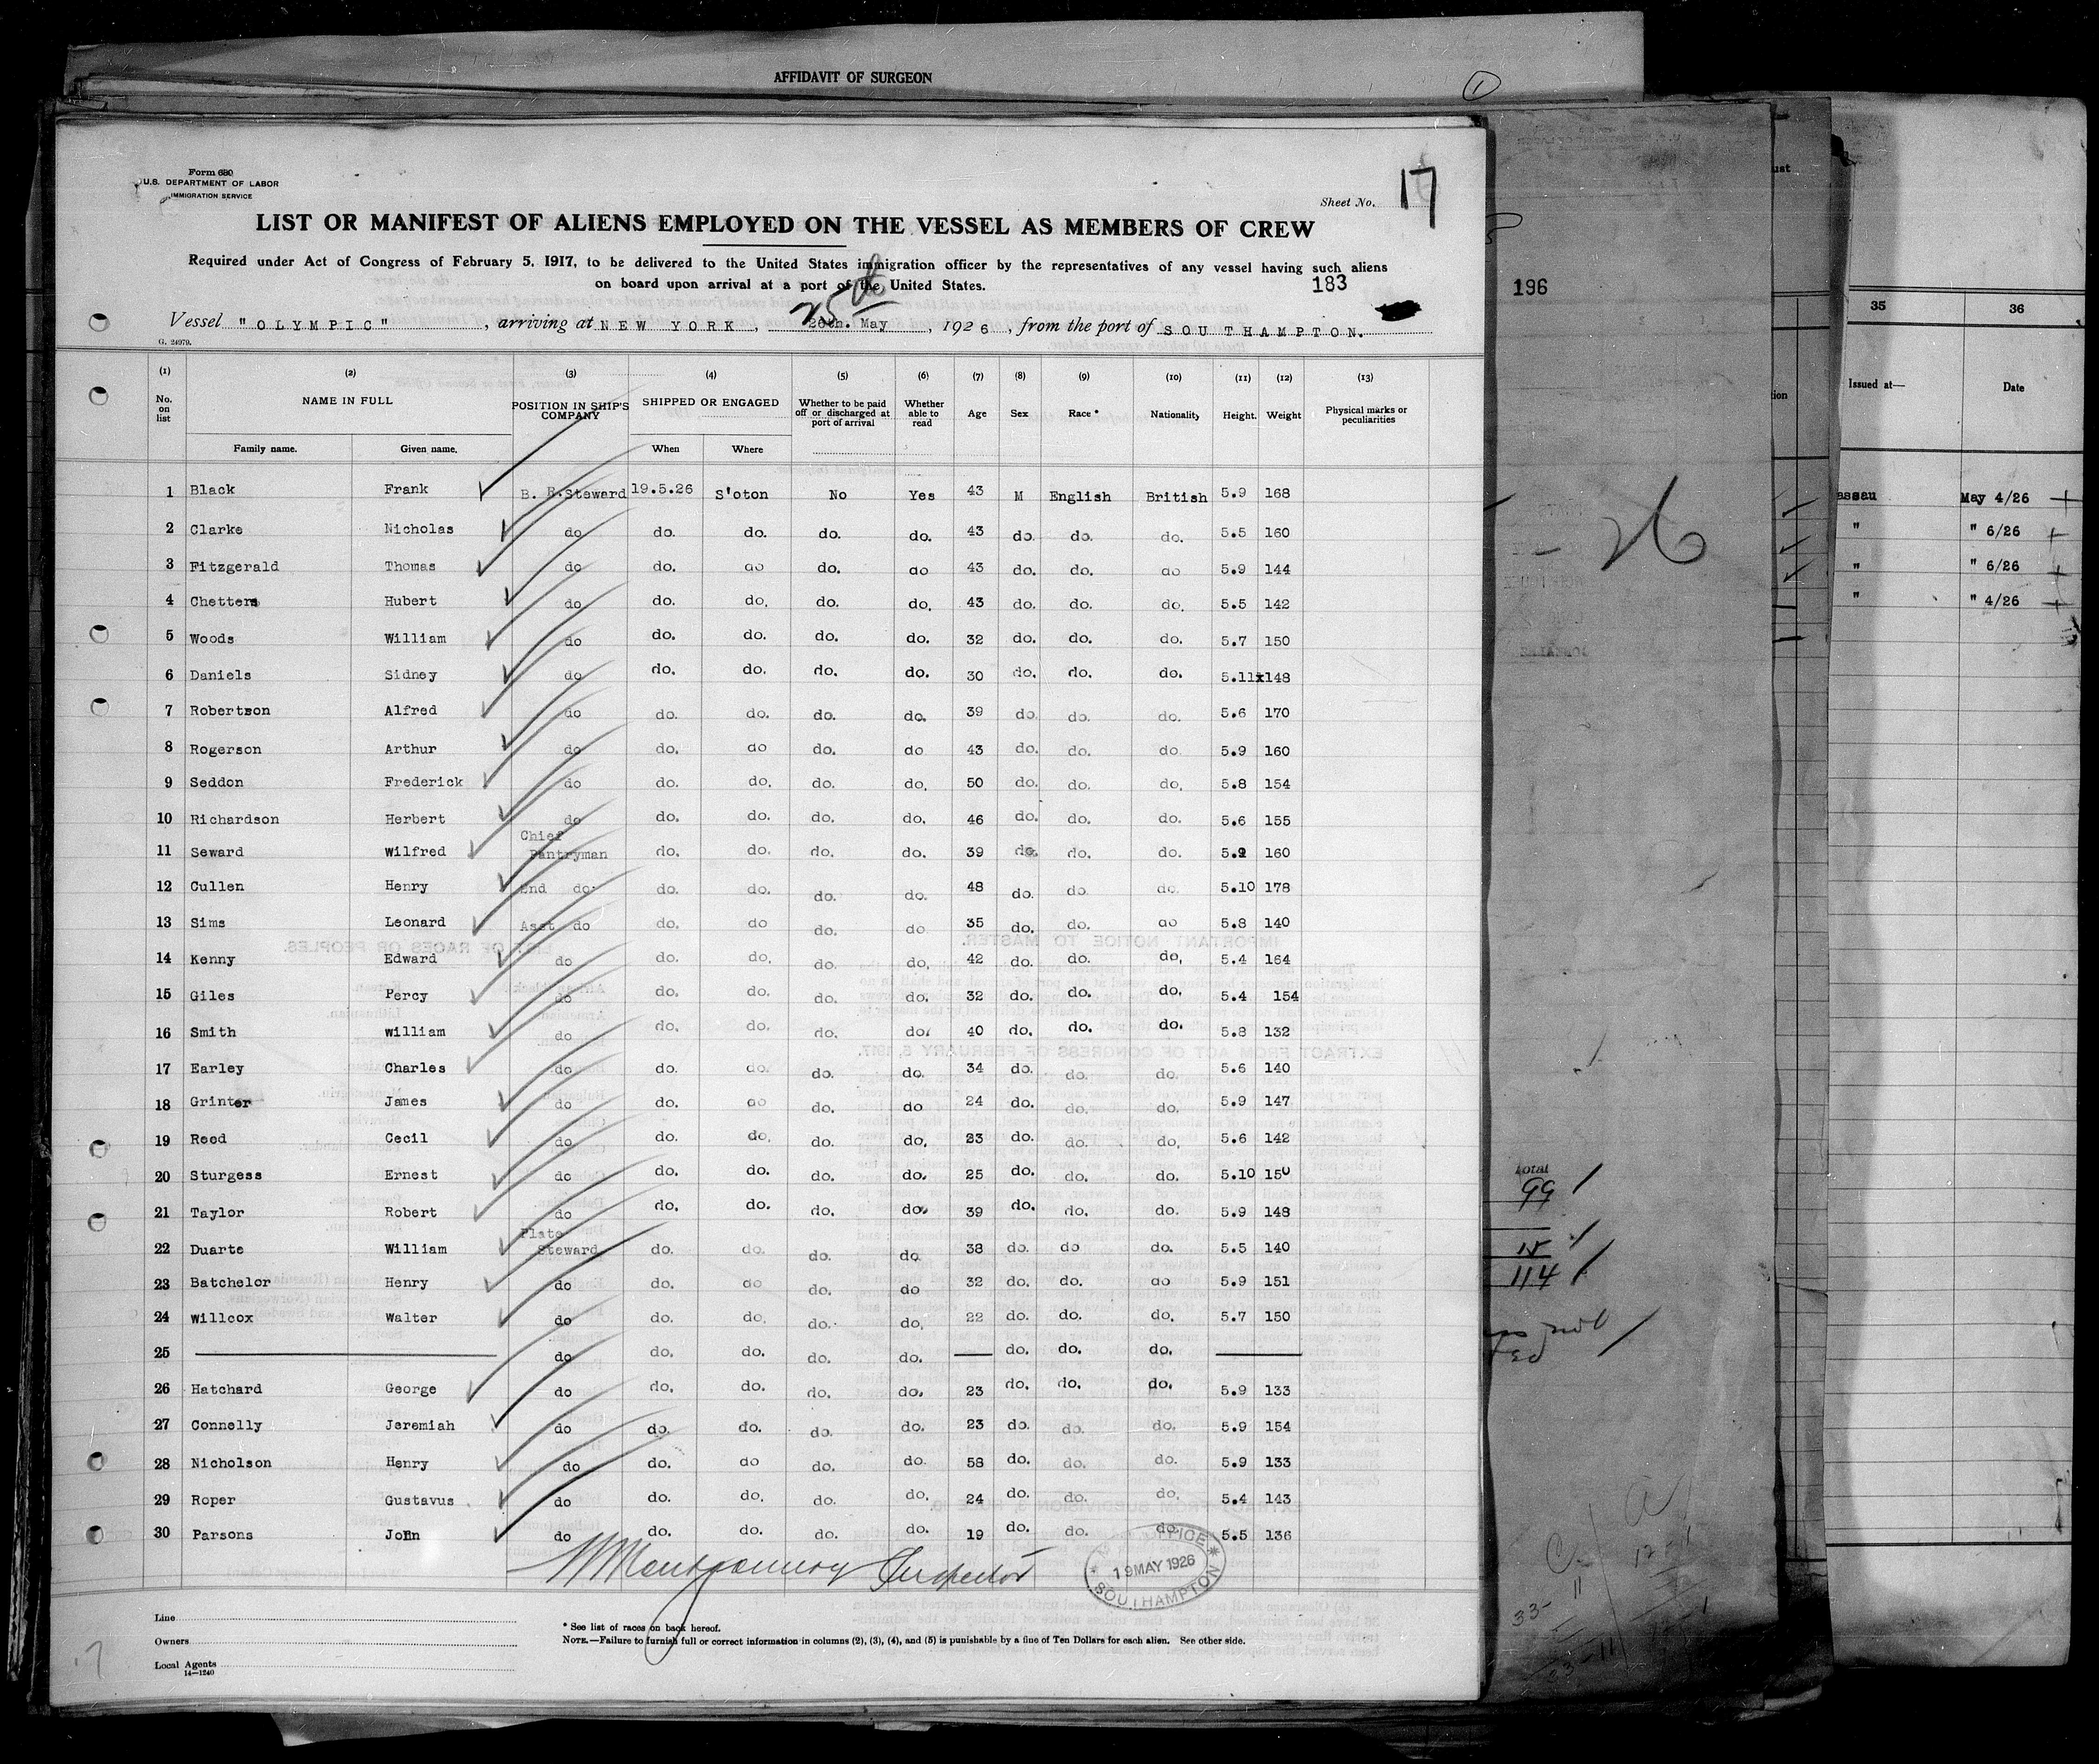 AFFIDAVIT OF SURGEON
Form 680
U.S. DEPARTMENT OF LABOR
IMMIGRATION SERVICE
Sheet No. 17
LIST OR MANIFEST OF ALIENS EMPLOYED ON THE VESSEL AS MEMBERS OF CREW
Required under Act of Congress of February 5, 1917, to be delivered to the United States immigration officer by the representatives of any vessel having such aliens
on board upon arrival at a port of the United States.
183
25th
Vessel "OLYMPIC", arriving at NEW YORK, 26th. May, 1926, from the port of SOUTHAMPTON.
G. 24979.
(1) (2) (3) (4) (5) (6) (7) (8) (9) (10) (11) (12) (13)
No. on list NAME IN FULL POSITION IN SHIP'S COMPANY SHIPPED OR ENGAGED Whether to be paid off or discharged at port of arrival Whether able to read Age Sex Race* Nationality Height. Weight Physical marks or peculiarities
Family name. Given name. When Where
1 Black Frank B. R. Steward 19.5.26 S'oton No Yes 43 M English British 5.9 168
2 Clarke Nicholas do do. do. do. do. 43 do. do. do. 5.5 160
3 Fitzgerald Thomas do do. do do. do 43 do. do. do 5.9 144
4 Chetters Hubert do do. do. do. do. 43 do. do. do. 5.5 142
5 Woods William do do. do. do. do. 32 do. do. do. 5.7 150
6 Daniels Sidney do do. do. do. do. 30 do. do. do. 5.11x148
7 Robertson Alfred do do. do. do. do. 39 do do. do. 5.6 170
8 Rogerson Arthur do do. do do. do 43 do. do. do 5.9 160
9 Seddon Frederick do do. do. do. do. 50 do. do. do. 5.8 154
10 Richardson Herbert do do. do. do. do. 46 do. do. do. 5.6 155
11 Seward Wilfred Chief Pantryman do. do. do. do. 39 do. do. do. 5.9 160
12 Cullen Henry 2nd do. do. do. do. do. 48 do. do do. 5.10 178
13 Sims Leonard Asst do do. do do. do 35 do. do. do 5.8 140
14 Kenny Edward do do. do. do. do. 42 do. do. do. 5.4 164
15 Giles Percy do do. do. do. do. 32 do. do. do. 5.4 154
16 Smith William do do. do. do. do. 40 do. do. do. 5.8 132
17 Earley Charles do do. do. do. do. 34 do. do. do. 5.6 140
18 Grinter James do do. do do. do 24 do. do. do. 5.9 147
19 Reed Cecil do do. do. do. do. 23 do. do. do. 5.6 142
20 Sturgess Ernest do do. do. do. do. 25 do. do. do. 5.10 150
21 Taylor Robert do do. do. do. do. 39 do. do. do. 5.9 148
22 Duarte William Plate Steward do. do. do. do 38 do. do do. 5.5 140
23 Batchelor Henry do do. do do. do 32 do. do. do 5.9 151
24 Willcox Walter do do. do. do. do. 22 do. do. do. 5.7 150
25 do do. do. do. do. do. do. do.
26 Hatchard George do do. do. do. do. 23 do. do. do. 5.9 133
27 Connelly Jeremiah do do. do. do. do. 23 do. do. do. 5.9 154
28 Nicholson Henry do do. do do. do. 58 do. do. do. 5.9 133
29 Roper Gustavus do do. do. do. do. 24 do. do. do. 5.4 143
30 Parsons John do do. do. do. do. 19 do. do. do. 5.5 136
Montgomery Inspector
19 MAY 1926
SOUTHAMPTON
Line
Owners
Local Agents
14—1240
* See list of races on back hereof.
NOTE.—Failure to furnish full or correct information in columns (2), (3), (4), and (5) is punishable by a fine of Ten Dollars for each alien. See other side.
196
26
total
99
15
114
35 36
Issued at— Date
assau May 4/26
" " 6/26
" " 6/26
" " 4/26